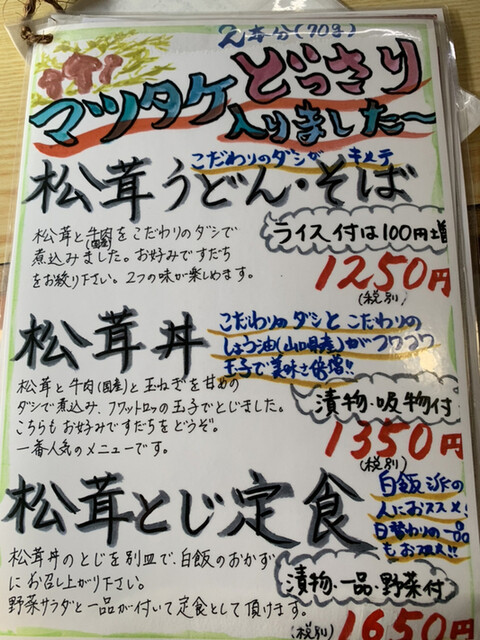 2本分(70g)
マツタケどっさり
入りました〜
こだわりのダシが キメテ
松茸うどん・そば
松茸と牛肉(国産)をこだわりのダシで
煮込みました。お好みですだち
をお絞り下さい。2つの味が楽しめます。
ライス付は100円増
1250円
(税別)
松茸丼
こだわりのダシとこだわりの
しょう油(山口県産)がフワフワ
玉子で美味さ倍増!!
松茸と牛肉(国産)と玉ねぎを甘めの
ダシで煮込み、フワットロッの玉子でとじました。
こちらもお好みですだちをどうぞ。
一番人気のメニューです。
漬物・吸物付
1350円
(税別)
松茸とじ定食
白飯派の
人におススメ!
日替わりの一品
もお楽み!!
松茸丼のとじを別皿で、白飯のおかず
にお召し上がり下さい。
野菜サラダと一品が付いて定食として頂けます。
漬物・一品・野菜付
(税別)
1650円